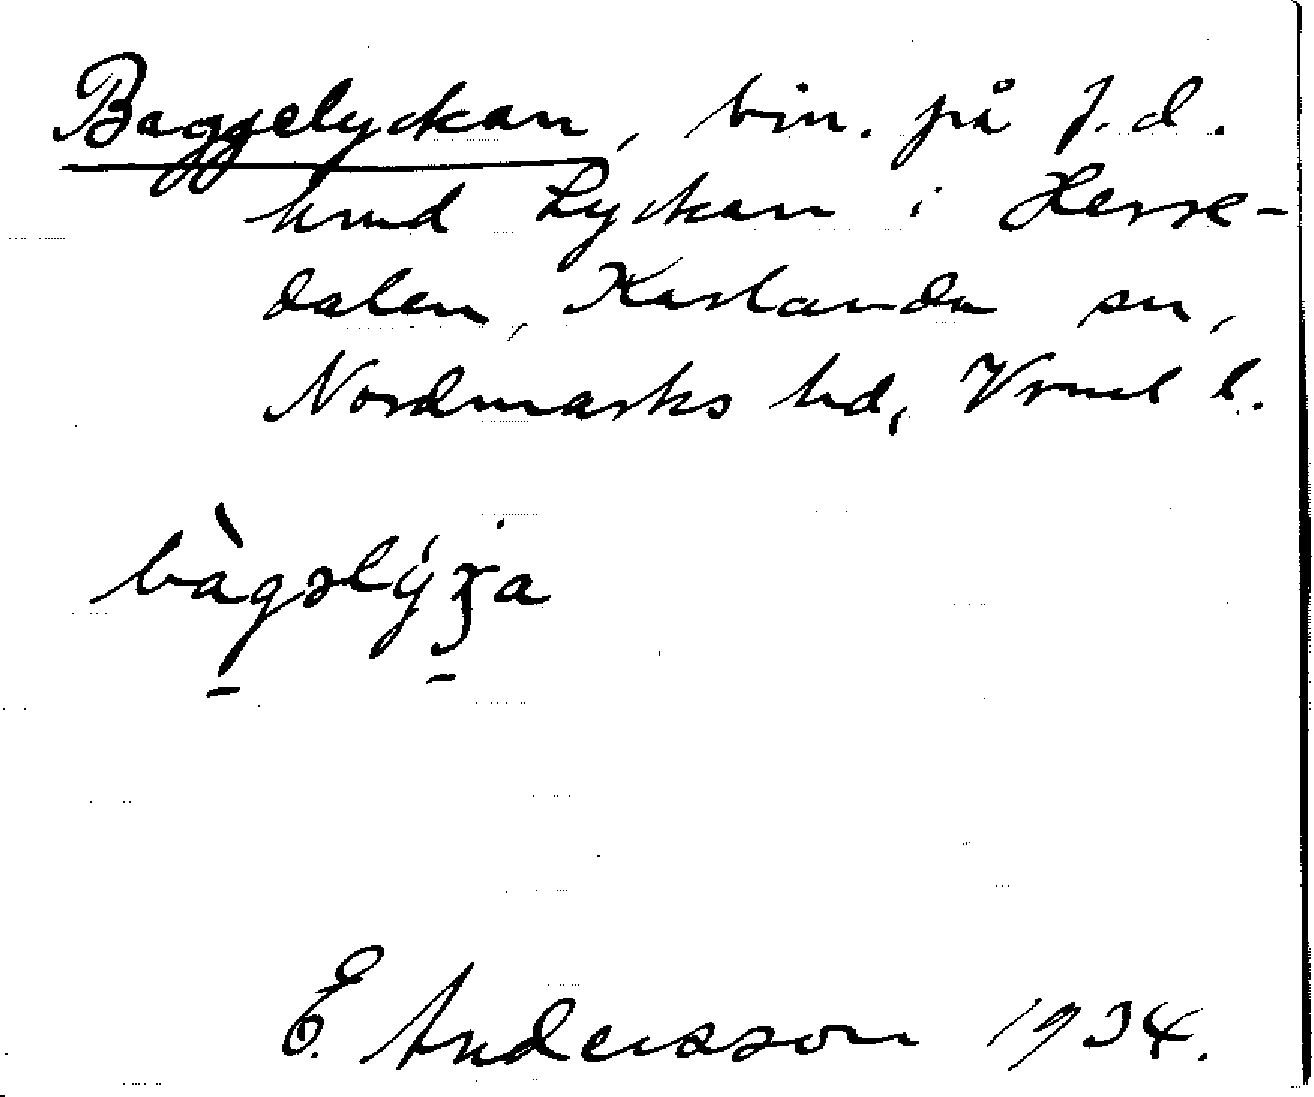 Baggelyckan, bin. på f. d.
hmd Lyckan i Herre-
dalen, Karlanda sn,
Nordmarks hd, Vrml l.
bàgəlýʒa
E. Andersson 1934.